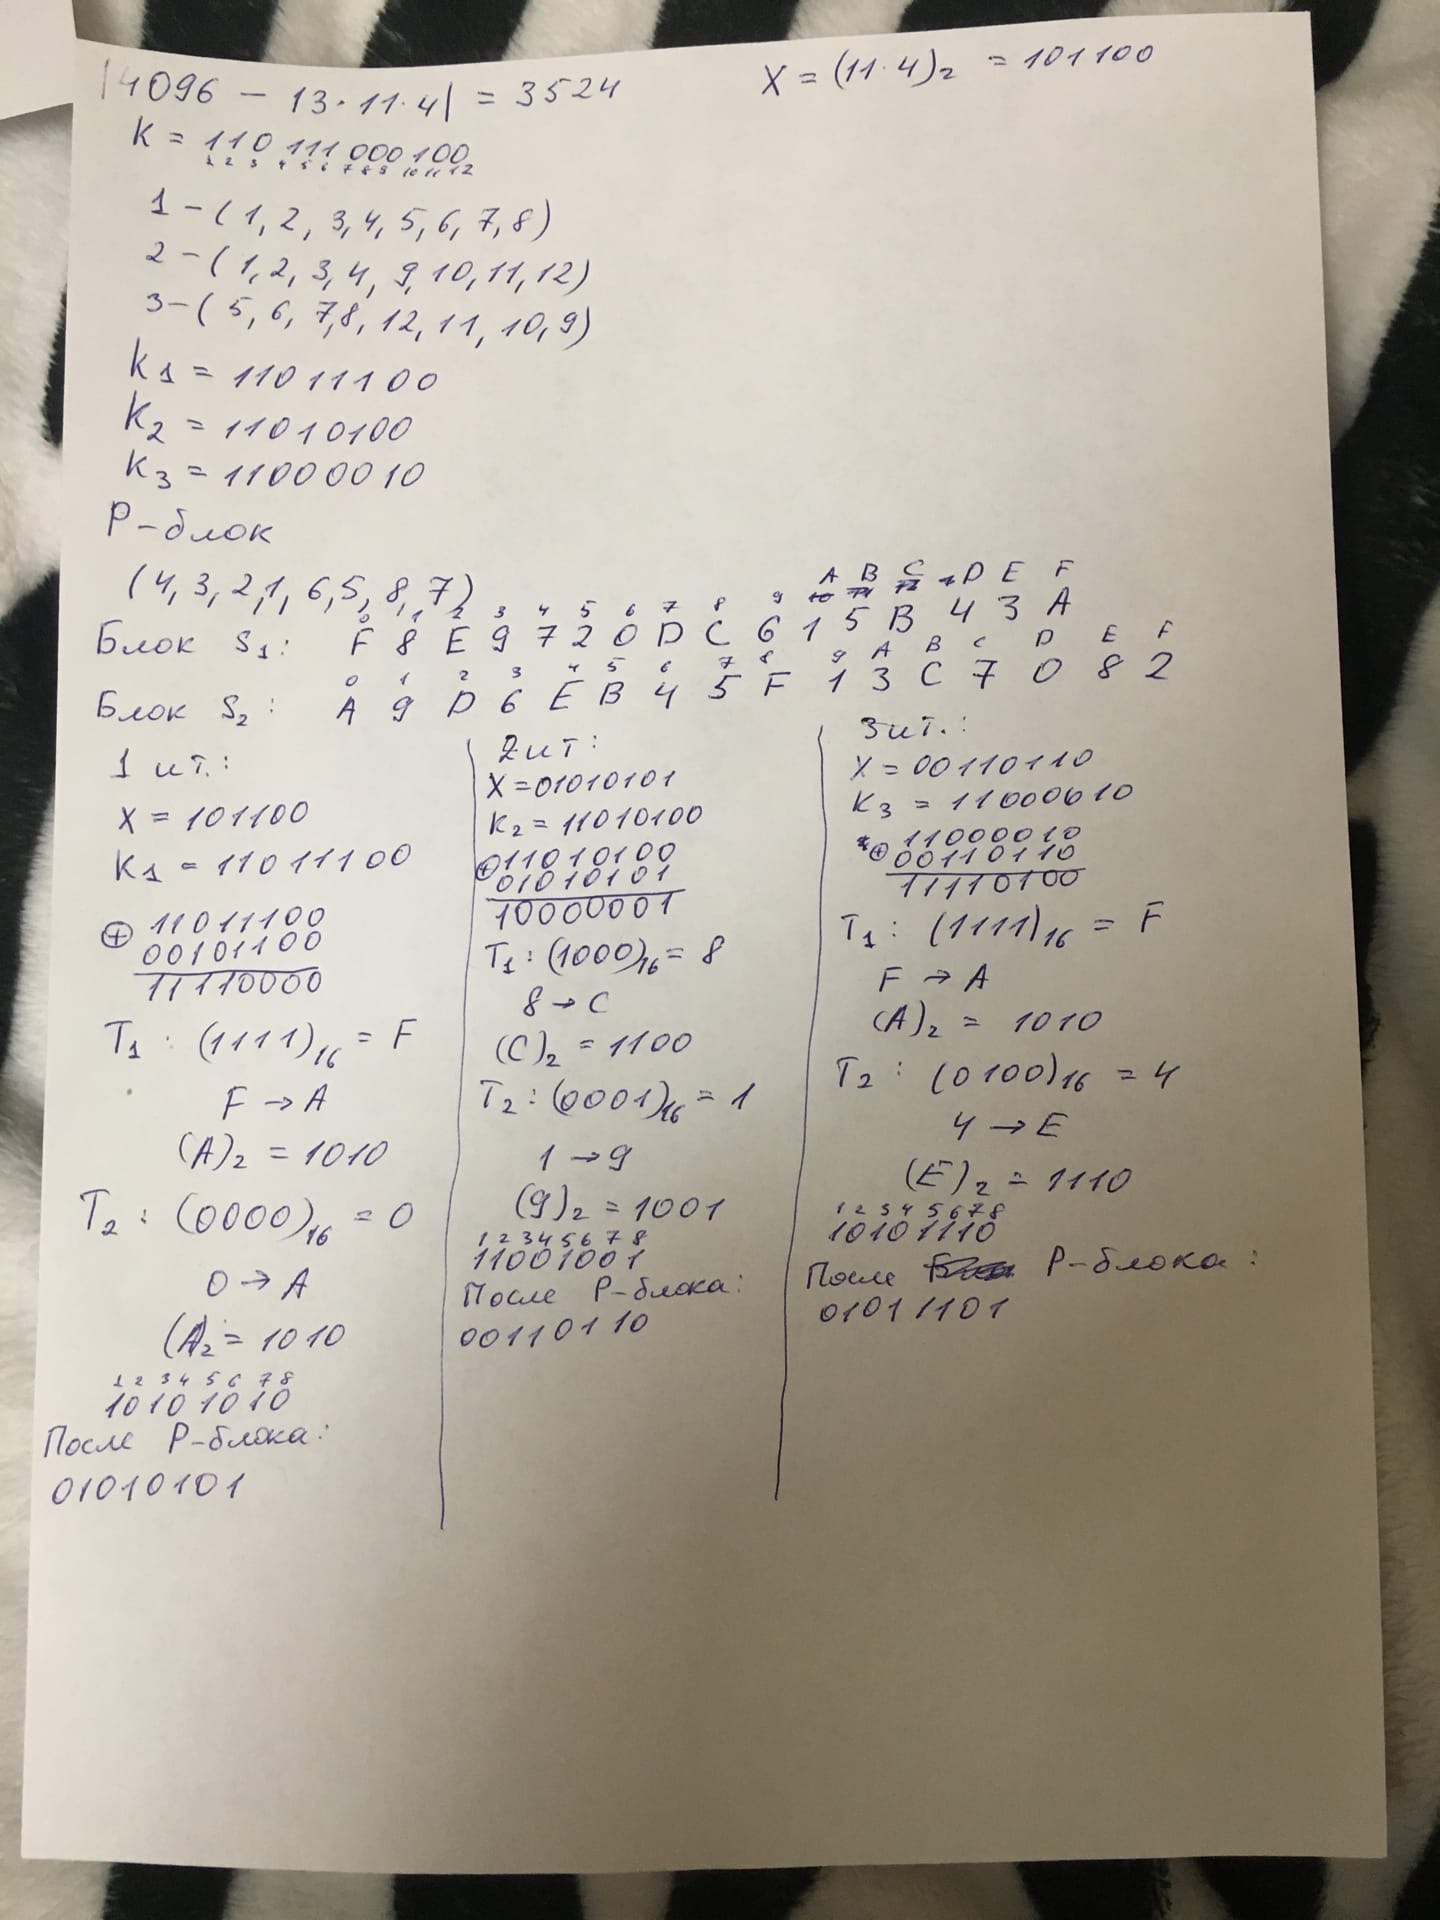 |4096 - 13·11·4| = 3524
X = (11·4)₂ = 101100
K = 110 111 000 100
1 2 3 4 5 6 7 8 9 10 11 12
1 - (1, 2, 3, 4, 5, 6, 7, 8)
2 - (1, 2, 3, 4, 9, 10, 11, 12)
3 - (5, 6, 7, 8, 12, 11, 10, 9)
K₁ = 11011100
K₂ = 11010100
K₃ = 11000010
P-блок
(4, 3, 2, 1, 6, 5, 8, 7)
0 1 2 3 4 5 6 7 8 9 A B C D E F
Блок S₁: F 8 E 9 7 2 0 D C 6 1 5 B 4 3 A
0 1 2 3 4 5 6 7 8 9 A B C D E F
Блок S₂: A 9 D 6 E B 4 5 F 1 3 C 7 0 8 2
1 ит.:
X = 101100
K₁ = 11011100
⊕ 11011100
00101100
11110000
T₁ : (1111)₁₆ = F
F → A
(A)₂ = 1010
T₂ : (0000)₁₆ = 0
0 → A
(A)₂ = 1010
1 2 3 4 5 6 7 8
10101010
После P-блока:
01010101
2 ит:
X = 01010101
K₂ = 11010100
⊕ 11010100
01010101
10000001
T₁ : (1000)₁₆ = 8
8 → C
(C)₂ = 1100
T₂ : (0001)₁₆ = 1
1 → 9
(9)₂ = 1001
1 2 3 4 5 6 7 8
11001001
После P-блока:
00110110
3 ит.:
X = 00110110
K₃ = 11000010
⊕ 11000010
00110110
11110100
T₁ : (1111)₁₆ = F
F → A
(A)₂ = 1010
T₂ : (0100)₁₆ = 4
4 → E
(E)₂ = 1110
1 2 3 4 5 6 7 8
10101110
После P-блока:
01011101